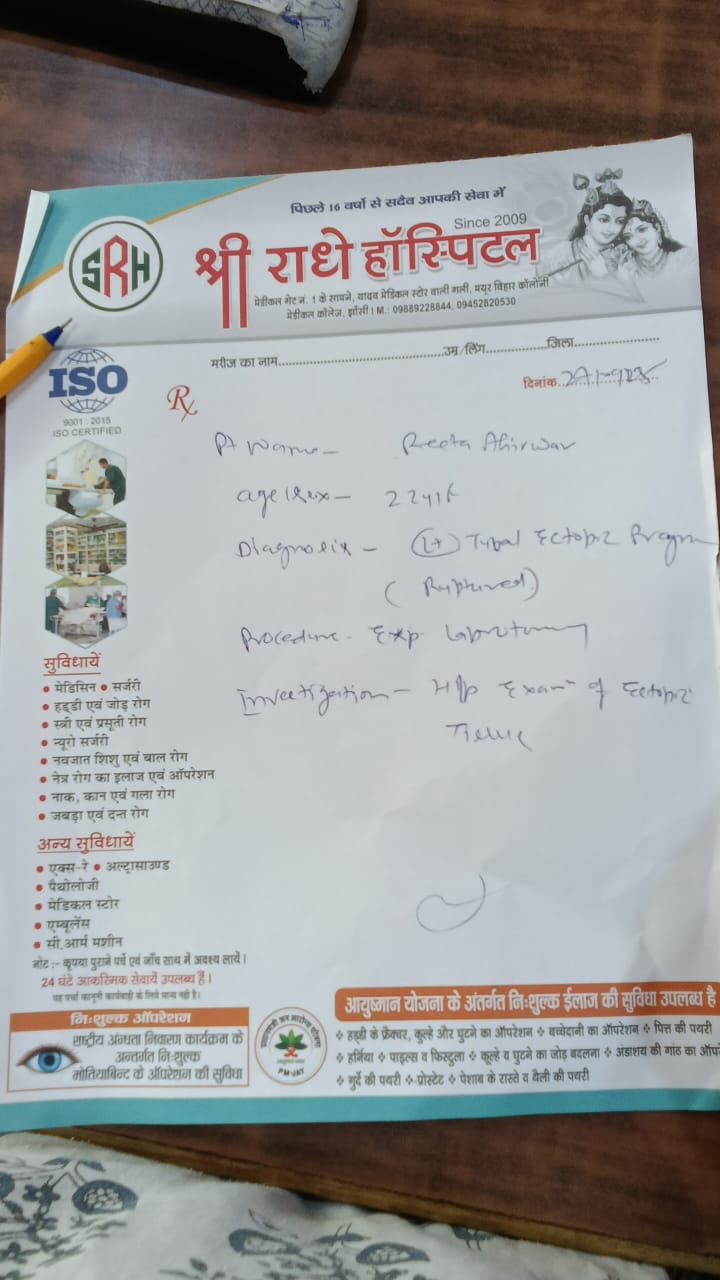 पिछले 16 वर्षो से सदैव आपकी सेवा में
Since 2009
SRH
श्री राधे हॉस्पिटल
मेडीकल गेट नं. 1 के सामने, यादव मेडिकल स्टोर वाली गली, मयूर बिहार कॉलोनी
मेडीकल कॉलेज, झाँसी। M.: 09889228844, 09452820530
मरीज का नाम..................उम्र/लिंग..................जिला..................
दिनांक
ISO
9001 : 2015
ISO CERTIFIED
Rx
Pt Name - Reeta Ahirwar
age/sex - 22y/F
Diagnosis - (Lt) Tubal Ectopic Pregn
(Ruptured)
Procedure - Exp laprotomy
Investigation - H/p Exam of Ectopic
Tissue
सुविधायें
• मेडिसिन • सर्जरी
• हड्डी एवं जोड़ रोग
• स्त्री एवं प्रसूती रोग
• न्यूरो सर्जरी
• नवजात शिशु एवं बाल रोग
• नेत्र रोग का इलाज एवं ऑपरेशन
• नाक, कान एवं गला रोग
• जबड़ा एवं दन्त रोग
अन्य सुविधायें
• एक्स-रे • अल्ट्रासाउण्ड
• पैथोलोजी
• मेडिकल स्टोर
• एम्बूलेंस
• सी.आर्म मशीन
नोट :- कृपया पुराने पर्चे एवं जाँच साथ में अवश्य लायें।
24 घंटे आकस्मिक सेवायें उपलब्ध है।
यह पर्चा कानूनी कार्यवाही के लिये मान्य नही है।
निःशुल्क ऑपरेशन
राष्ट्रीय अन्धता निवारण कार्यक्रम के
अन्तर्गत निःशुल्क
मोतियाबिन्द के ऑपरेशन की सुविधा
PM-JAY
आयुष्मान योजना के अंतर्गत निःशुल्क ईलाज की सुविधा उपलब्ध है
❖ हड्डी के फ्रैक्चर, कुल्हे और घुटने का ऑपरेशन ❖ बच्चेदानी का ऑपरेशन ❖ पित्त की पथरी
❖ हर्निया ❖ पाइल्स व फिस्टुला ❖ कूल्हे व घुटने का जोड़ बदलना ❖ अंडाशय की गांठ का ऑपरे
❖ गुर्दे की पथरी ❖ प्रोस्टेट ❖ पेशाब के रास्ते व थैली की पथरी